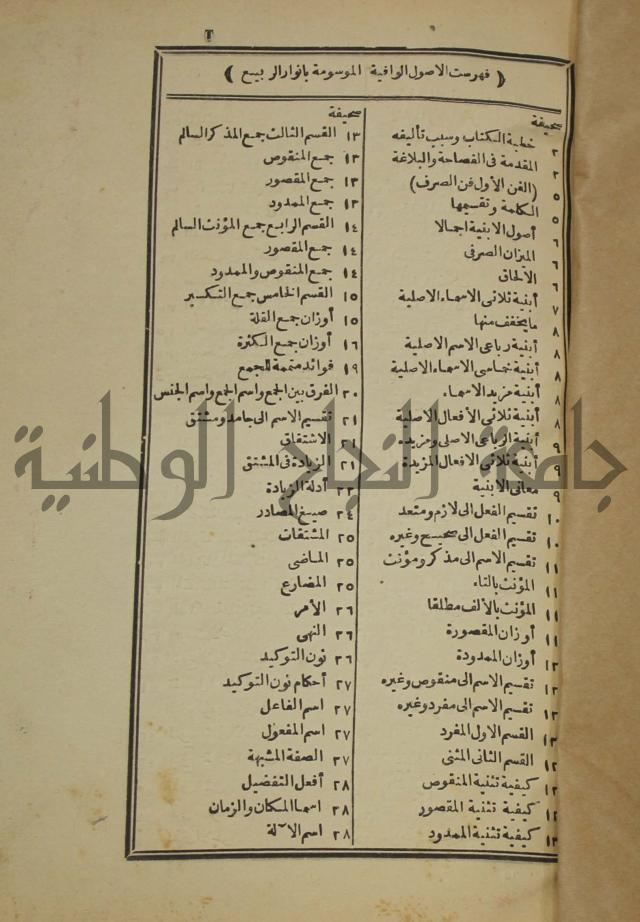 ٢
﴿ فهرست الاصول الوافية الموسومة بانوار الربيع ﴾
صحيفة
٢ خطبة الكتاب وسبب تأليفه
٢ المقدمة فى الفصاحة والبلاغة
٥ (الفن الأول فن الصرف)
٥ الكلمة وتقسيمها
٦ أصول الابنية اجمالا
٦ الميزان الصرفى
٦ الالحاق
٧ أبنية ثلاثى الاسماء الاصلية
٨ ما يخفف منها
٨ أبنية رباعى الاسم الاصلية
٨ أبنية خماسى الاسماء الاصلية
٨ أبنية مزيد الاسماء
٨ أبنية ثلاثى الأفعال الاصلية
٩ أبنية الرباعى الاصلى ومزيده
٩ أبنية ثلاثى الافعال المزيدة
٩ معانى الابنية
١٠ تقسيم الفعل الى لازم ومتعد
١٠ تقسيم الفعل الى صحيح وغيره
١١ تقسيم الاسم الى مذكر ومؤنث
١١ المؤنث بالتاء
١١ المؤنث بالألف مطلقا
١١ أوزان المقصورة
١٢ أوزان الممدودة
١٢ تقسيم الاسم الى منقوص وغيره
١٢ تقسيم الاسم الى مفرد وغيره
١٢ القسم الاول المفرد
١٢ القسم الثانى المثنى
١٢ كيفية تثنية المنقوص
١٢ كيفية تثنية المقصور
١٣ كيفية تثنية الممدود
صحيفة
١٣ القسم الثالث جمع المذكر السالم
١٣ جمع المنقوص
١٣ جمع المقصور
١٣ جمع الممدود
١٤ القسم الرابع جمع المؤنث السالم
١٤ جمع المقصور
١٤ جمع المنقوص والممدود
١٥ القسم الخامس جمع التكسير
١٥ أوزان جمع القلة
١٦ أوزان جمع الكثرة
١٩ فوائد متممة للجمع
٢٠ الفرق بين الجمع واسم الجمع واسم الجنس
٢١ تقسيم الاسم الى جامد ومشتق
٢١ الاشتقاق
٢١ الزيادة فى المشتق
٢٢ أدلة الزيادة
٢٤ صيغ المصادر
٢٥ المشتقات
٢٥ الماضى
٢٥ المضارع
٢٦ الأمر
٢٦ النهى
٢٦ نون التوكيد
٢٧ أحكام نون التوكيد
٢٧ اسم الفاعل
٢٧ اسم المفعول
٢٧ الصفة المشبهة
٢٨ أفعل التفضيل
٢٨ اسما المكان والزمان
٢٨ اسم الآلة
جامعة النجاح الوطنية